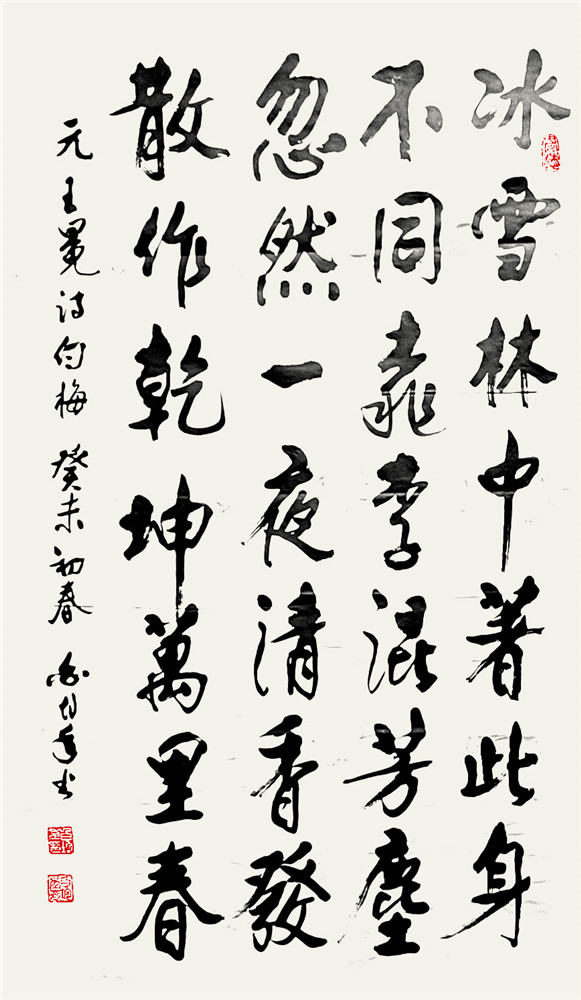 冰雪林中著此身
不同桃李混芳塵
忽然一夜清香發
散作乾坤萬里春
元王冕诗句梅 癸未初春